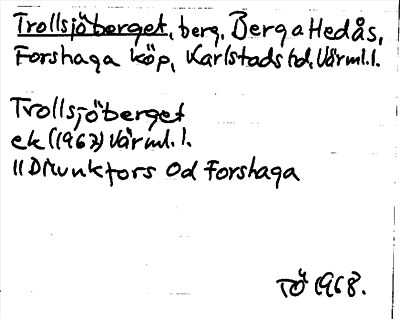 Trollsjöberget, berg, Berga Hedås,
Forshaga köp, Karlstads hd, Värml. l.
Trollsjöberget
ek (1967) Värml. l.
11D Munkfors 0d Forshaga
TÖ 1968.